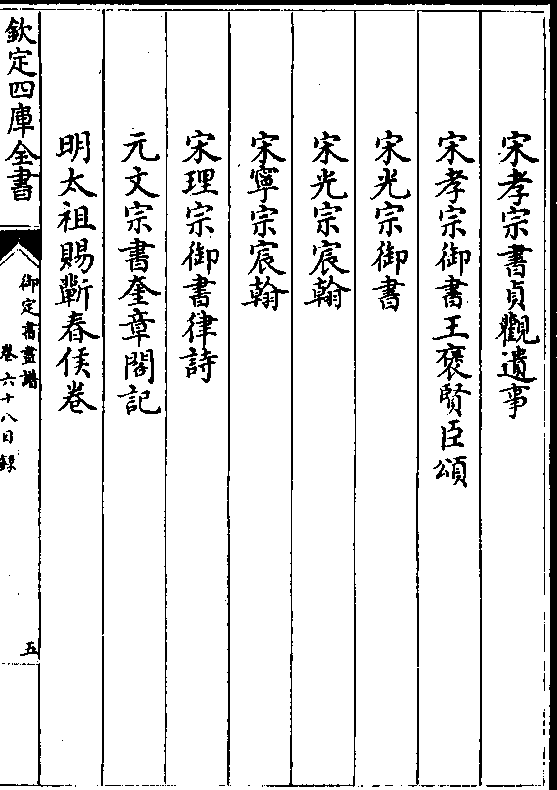 宋孝宗書貞觀遺事
宋孝宗御書王褒賢臣頌
宋光宗御書
宋光宗宸翰
宋寧宗宸翰
宋理宗御書律詩
元文宗書奎章閣記
明太祖賜蘄春侯卷
欽定四庫全書
御定書畫譜
卷六十八目錄
五